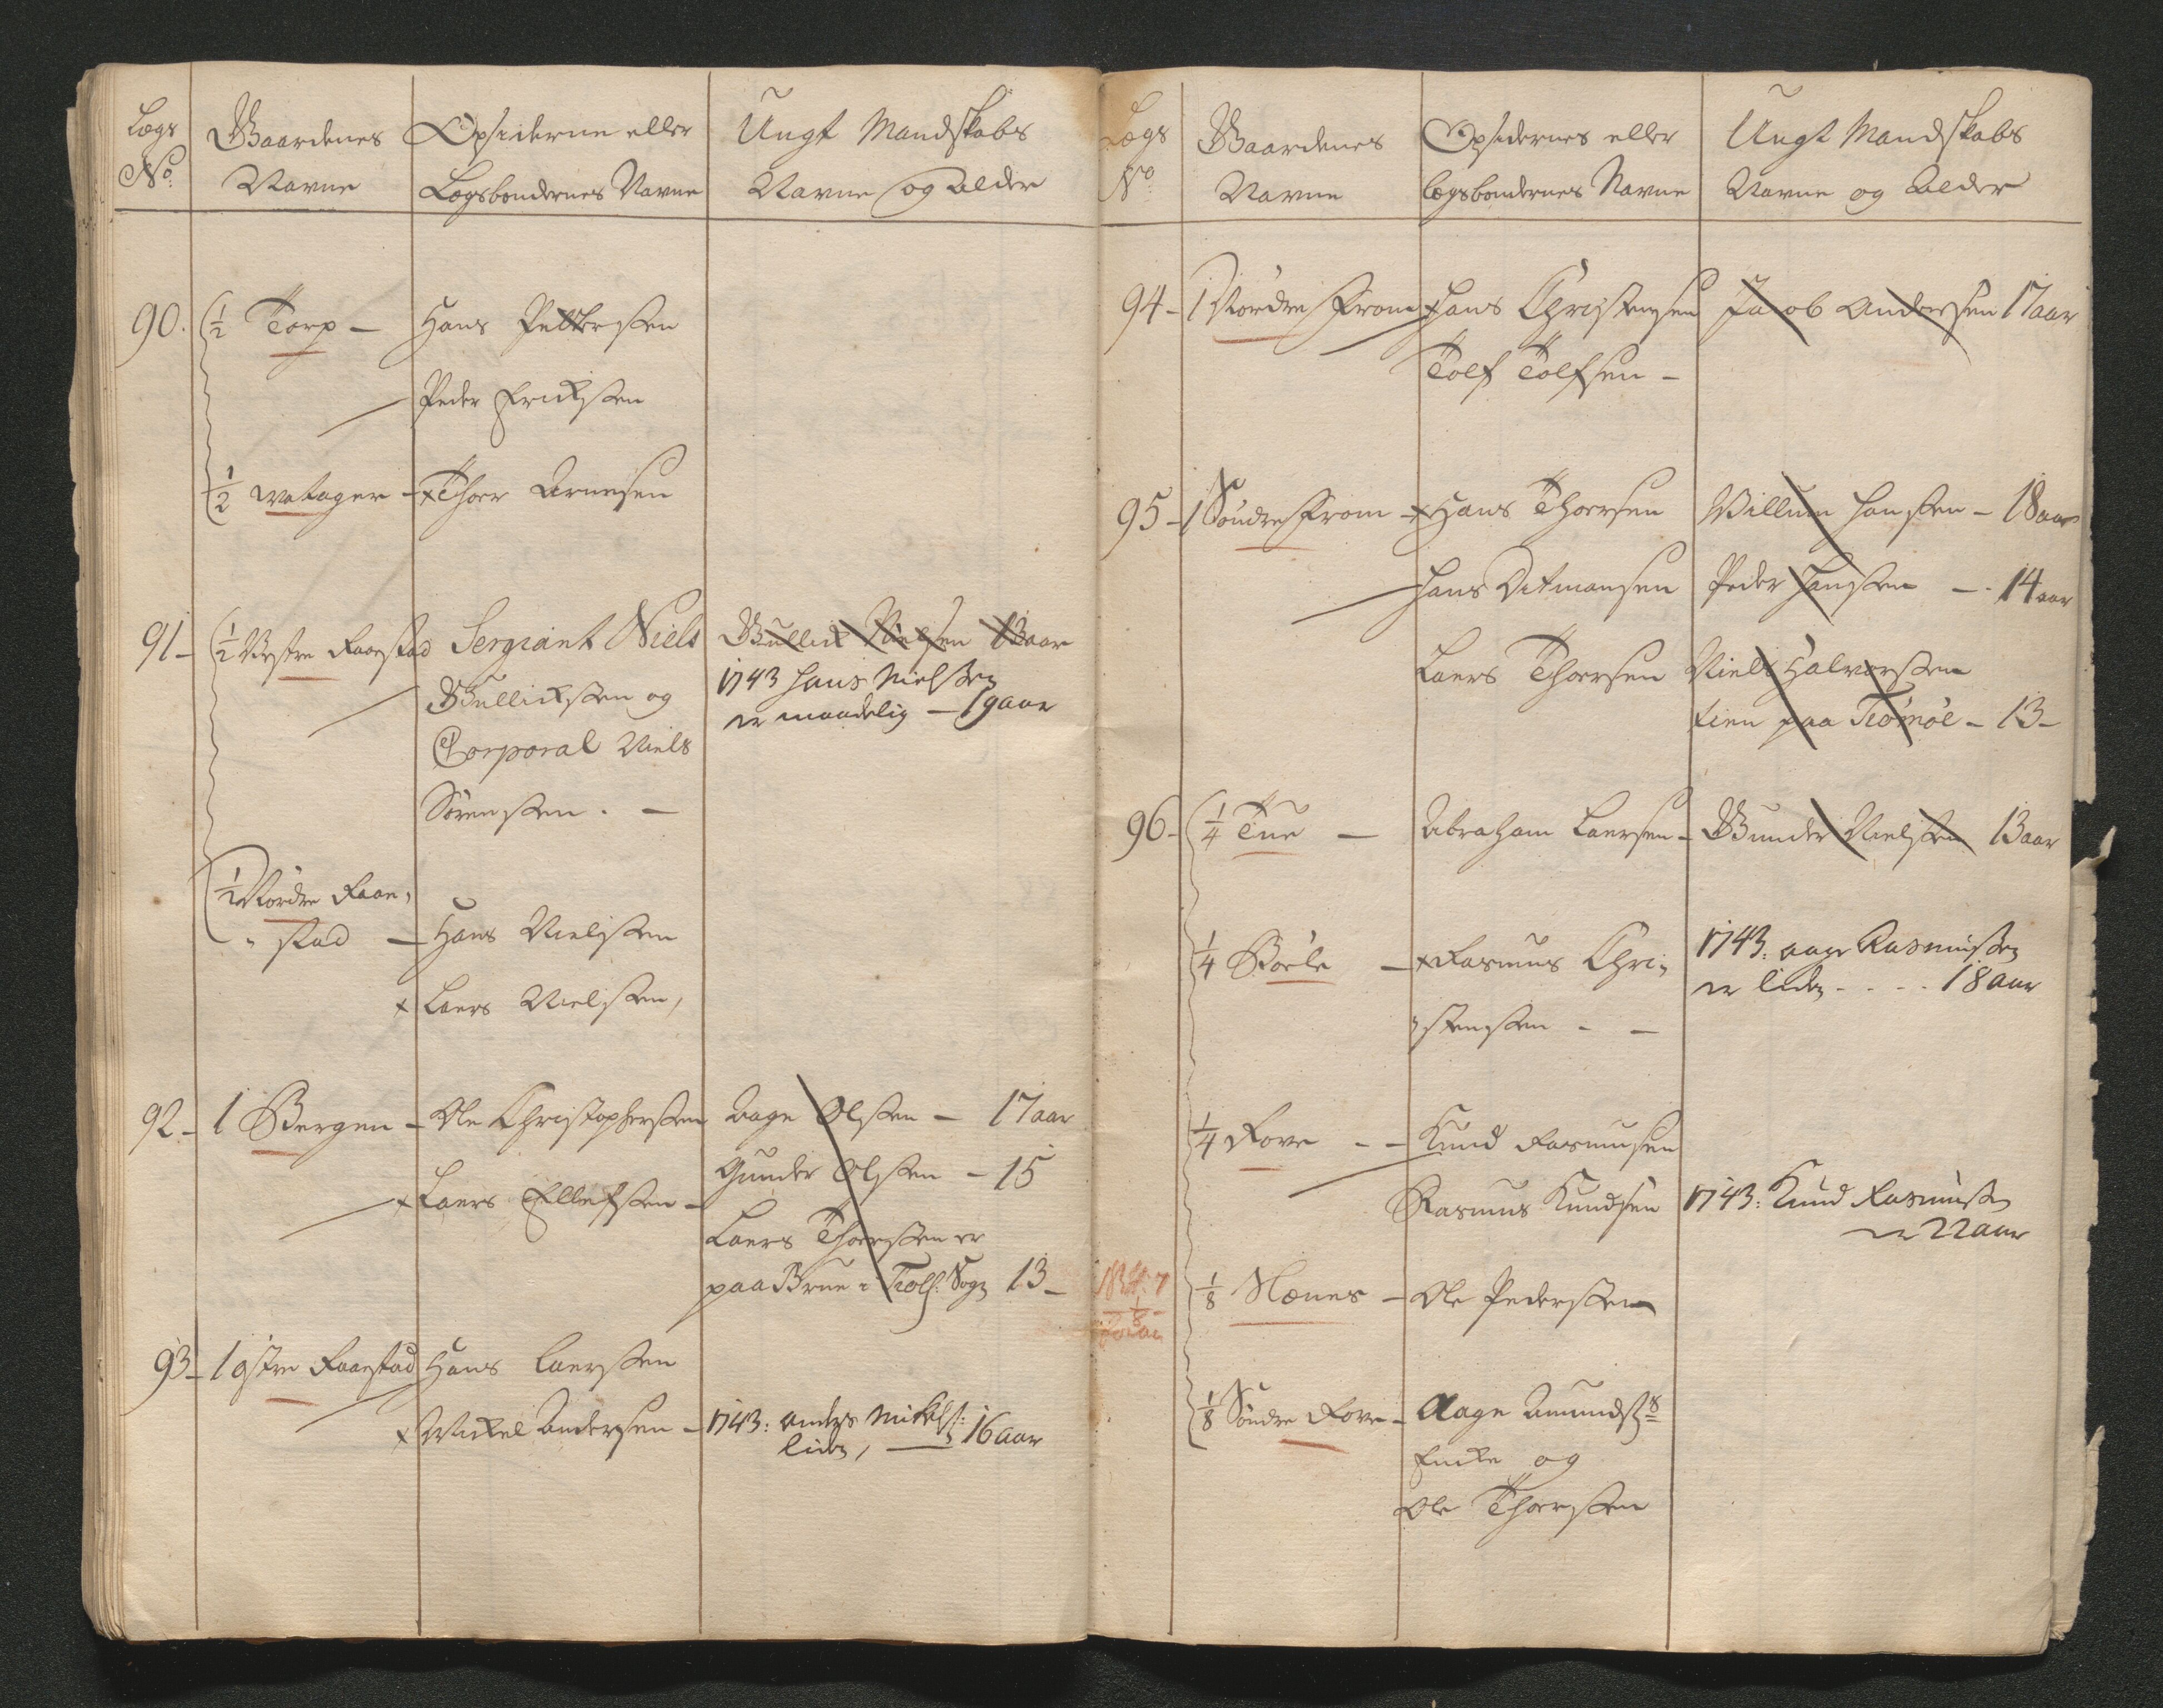 Lægs
No:
Gaardenes
Navne
Opsiderne eller
Lægsbøndernes Navne
Ungt Mandskabs
Navne og Alder
90. 1/2 Torp - Hans Pettersen
Peder Erichsen
1/2 watager - x Thoer Arnesen
91 - 1/2 Vestre Raastad Sergiant Niels Gullich Nielsen 13 aar
Gullichsen og 1743 Hans Nielsen
er maadelig - 19 aar
Corporal Niels
Sørensen. -
1/2 Nordre Raa-
stad - Hans Nielsen
x Laers Nielsen,
92 - 1 Bergen - Ole Christophersen Aage Olsen - 17 aar
Gunder Olsen - 15
x Laers Ellefsen - Laers Thorsen er
paa Brue i Tiøl: Sogn 13 -
93 - 1 østre Raastad Hans Laersen
x Mickel Andersen - 1743: Anders Mikels:
liden, - 16 aar
Lægs
No
Gaardenes
Navne
Opsidernes eller
Lægsbøndernes Navne
Ungt Mandskabs
Navne og Alder
94 - 1 Nordre From x Hans Christensen Jacob Andersen 17 aar
Tolf Tolfsen -
95 - 1 Søndre From - x Hans Thorsen Willum Hansen - 18 aar
Hans Ditmansen Peder Hansen - 14 aar
Laers Thorsen Niels Halvorsen
tien paa Tiømøe - 13 -
96 - 1/4 Tue - Abraham Laersen - Gunder Nielsen 13 aar
1/4 Bøele - x Rasmus Chri- 1743: Aage Rasmusen
er liden - - - 18 aar
stensen - -
1/4 Rore - - Knud Rasmusen
Rasmus Knudsen 1743: Knud Rasmusen
er 22 aar
1/8
1/8 Nænes - Ole Pedersen
1/8 Søndre Rore - Aage Amunds:s
Encke og
Ole Thorsen